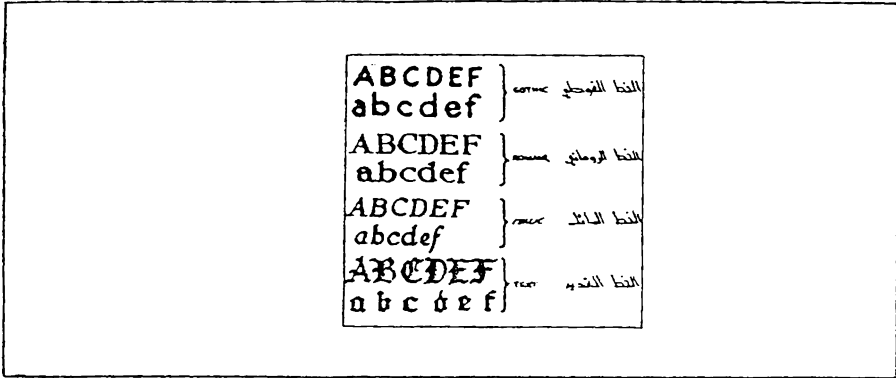 ABCDEF
abcdef
GOTHIC الخط القوطي
ABCDEF
abcdef
ROMAN الخط الروماني
ABCDEF
abcdef
ITALIC الخط المائل
ABCDEF
abcdef
TEXT الخط القديم